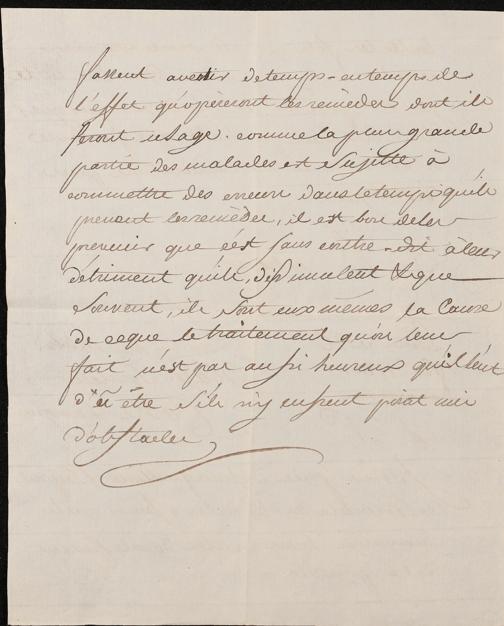 fassent avertir de temps-en temps de
l'effet qu'opèreront les remèdes dont ils
feront usage. comme la plus grande
partie des malades est sujette à
commettre des erreurs dans le temps qu'ils
prenent les remèdes, il est bon de les
prévenir que c'est sans contre-dit à leur
détriment qu'ils dissimulent & que
souvent, ils sont eux mêmes la cause
de ceque le traitement qu'on leur
fait n'est pas aussi heureux qu'il l'eut
été s'ils n'y eussent point mis
d'obstacles